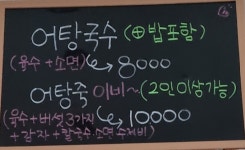 어탕국수 (⊕밥포함)
(육수+소면) ↪ 8000
어탕죽 이비~ (2인이상가능)
(육수+버섯3가지 ↪ 10000
+감자+칼국수소면수제비)